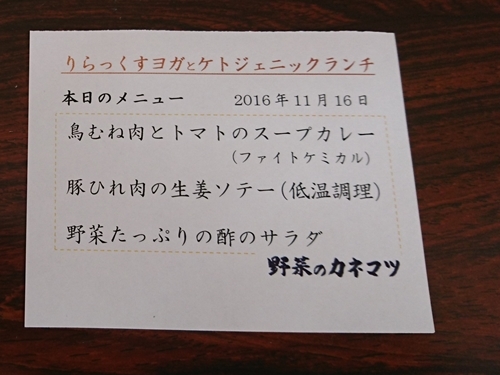 りらっくすヨガとケトジェニックランチ
本日のメニュー 2016年11月16日
鳥むね肉とトマトのスープカレー
(ファイトケミカル)
豚ひれ肉の生姜ソテー(低温調理)
野菜たっぷりの酢のサラダ
野菜のカネマツ